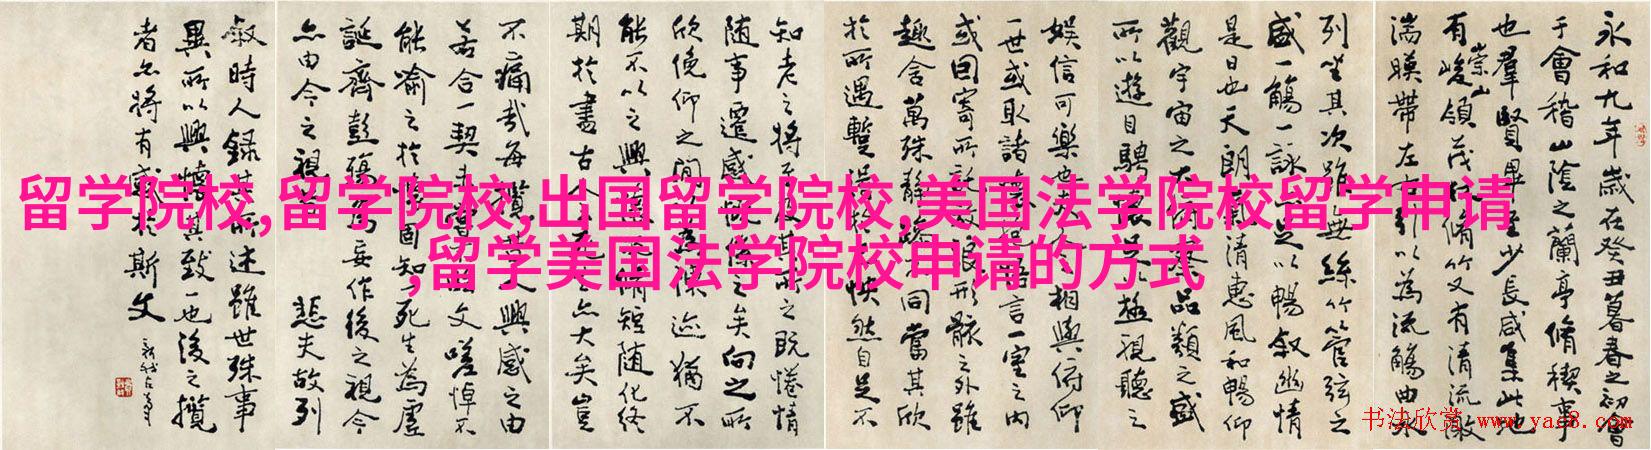 留学院校,留学院校,出国留学院校,美国法学院校留学申请
,留学美国法学院校申请的方式
永和九年歲在癸丑暮春之初會
于會稽山陰之蘭亭脩稧事
也羣賢畢至少長咸集此地
有崇山峻領茂林脩竹又有清流激
湍暎帶左右引以為流觴曲水
列坐其次雖無絲竹管弦之
盛一觴一詠亦足以暢敘幽情
是日也天朗氣清惠風和暢仰
觀宇宙之大俯察品類之盛
所以遊目騁懷足以極視聽之
娛信可樂也夫人之相與俯仰
一世或取諸懷抱悟言一室之內
或因寄所託放浪形骸之外雖
趣舍萬殊靜躁不同當其欣
於所遇蹔得於己怏然自足不
知老之將至及其所之既惓情
隨事遷感慨係之矣向之所
欣俛仰之間以為陳迹猶不
能不以之興懷況脩短隨化終
期於盡古人云死生亦大矣豈
不痛哉每攬昔人興感之由
若合一契未嘗不臨文嗟悼不
能喻之於懷固知一死生為虛
誕齊彭殤為妄作後之視今
亦由今之視昔悲夫故列
敘時人錄其所述雖世殊事
異所以興懷其致一也後之攬
者亦將有感於斯文
书法欣赏 www.yac8.com